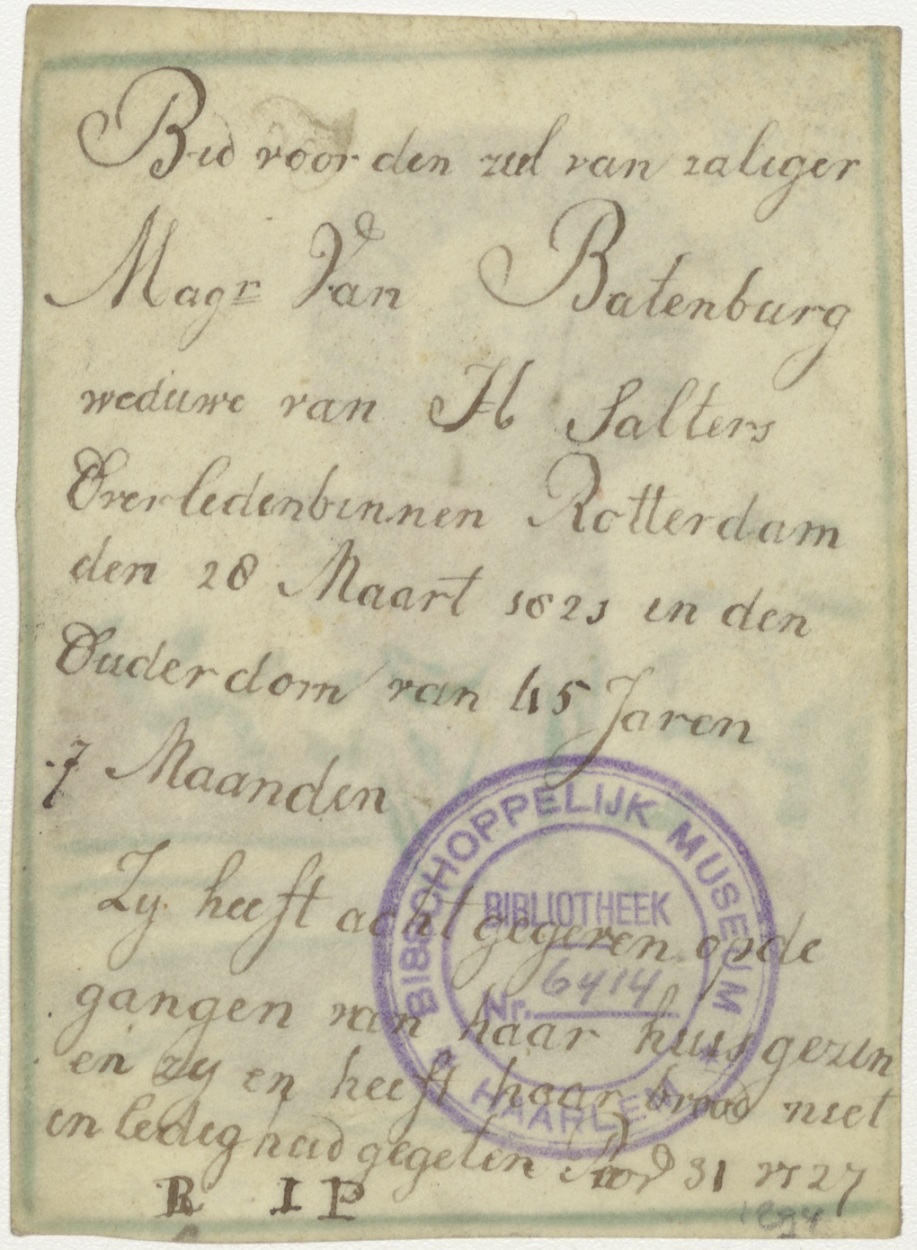 Bid voor den ziel van zaliger
Magr Van Batenburg
weduwe van H Salters
Overledenbinnen Rotterdam
den 28 Maart 1821 in den
Ouderdom van 45 Jaren
7 Maanden
Zy heeft acht gegeven opde
gangen van haar huisgezin
en zy en heeft haar brood niet
in ledigheid gegeten 31 vs 27
R I P
BISSCHOPPELIJK MUSEUM
HAARLEM
BIBLIOTHEEK
Nr. 6414